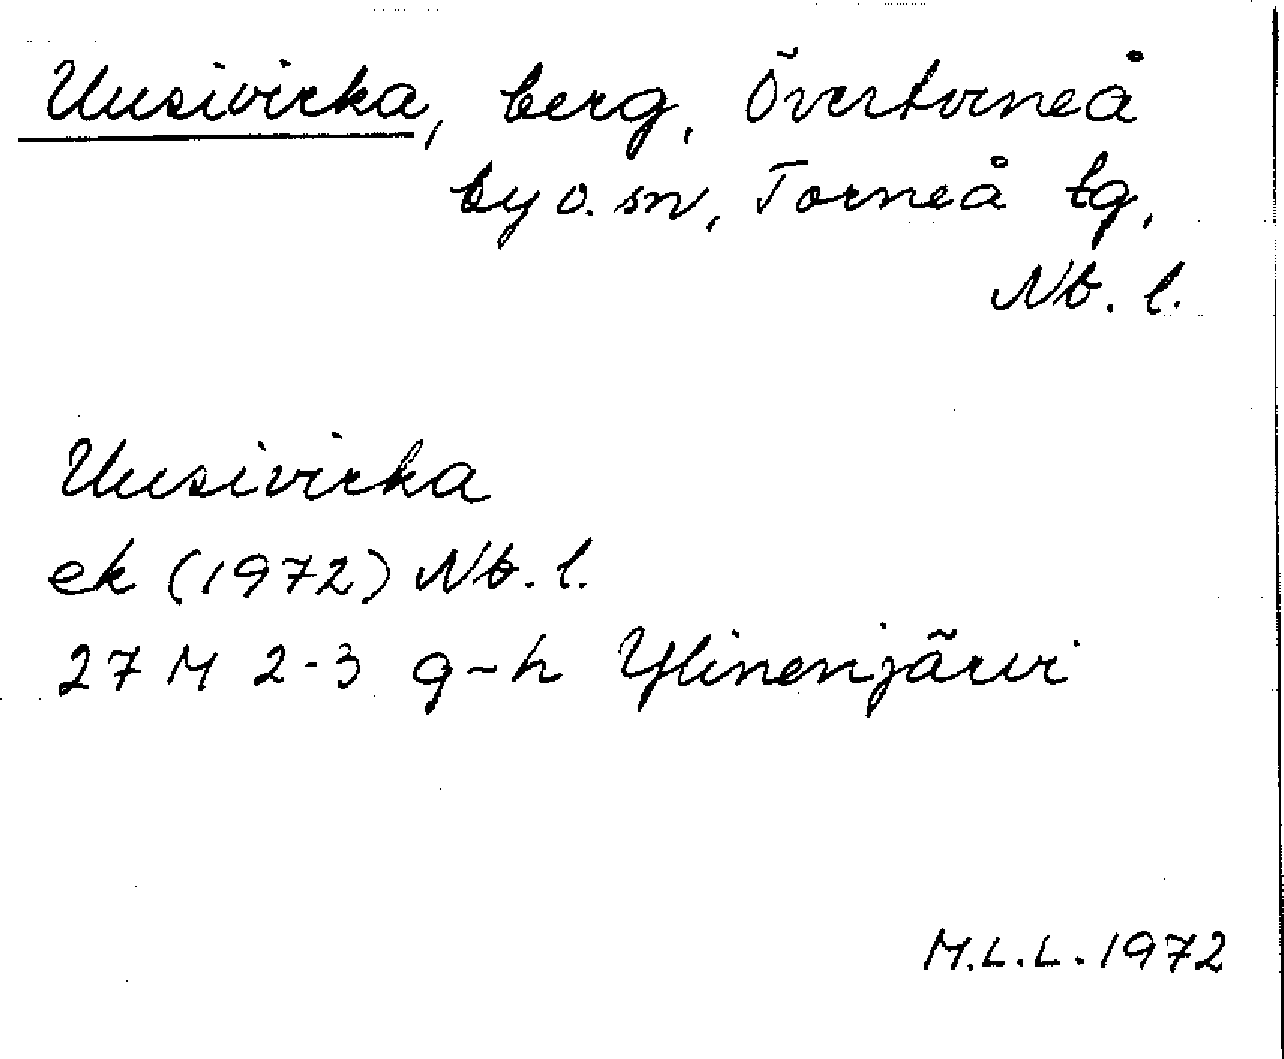 Uusivirka, berg, Övertorneå
by o. sn, Torneå tg,
Nb. l.
Uusivirka
ek (1972) Nb. l.
27 M 2-3 g-h Ylinenjärvi
M.L.L. 1972